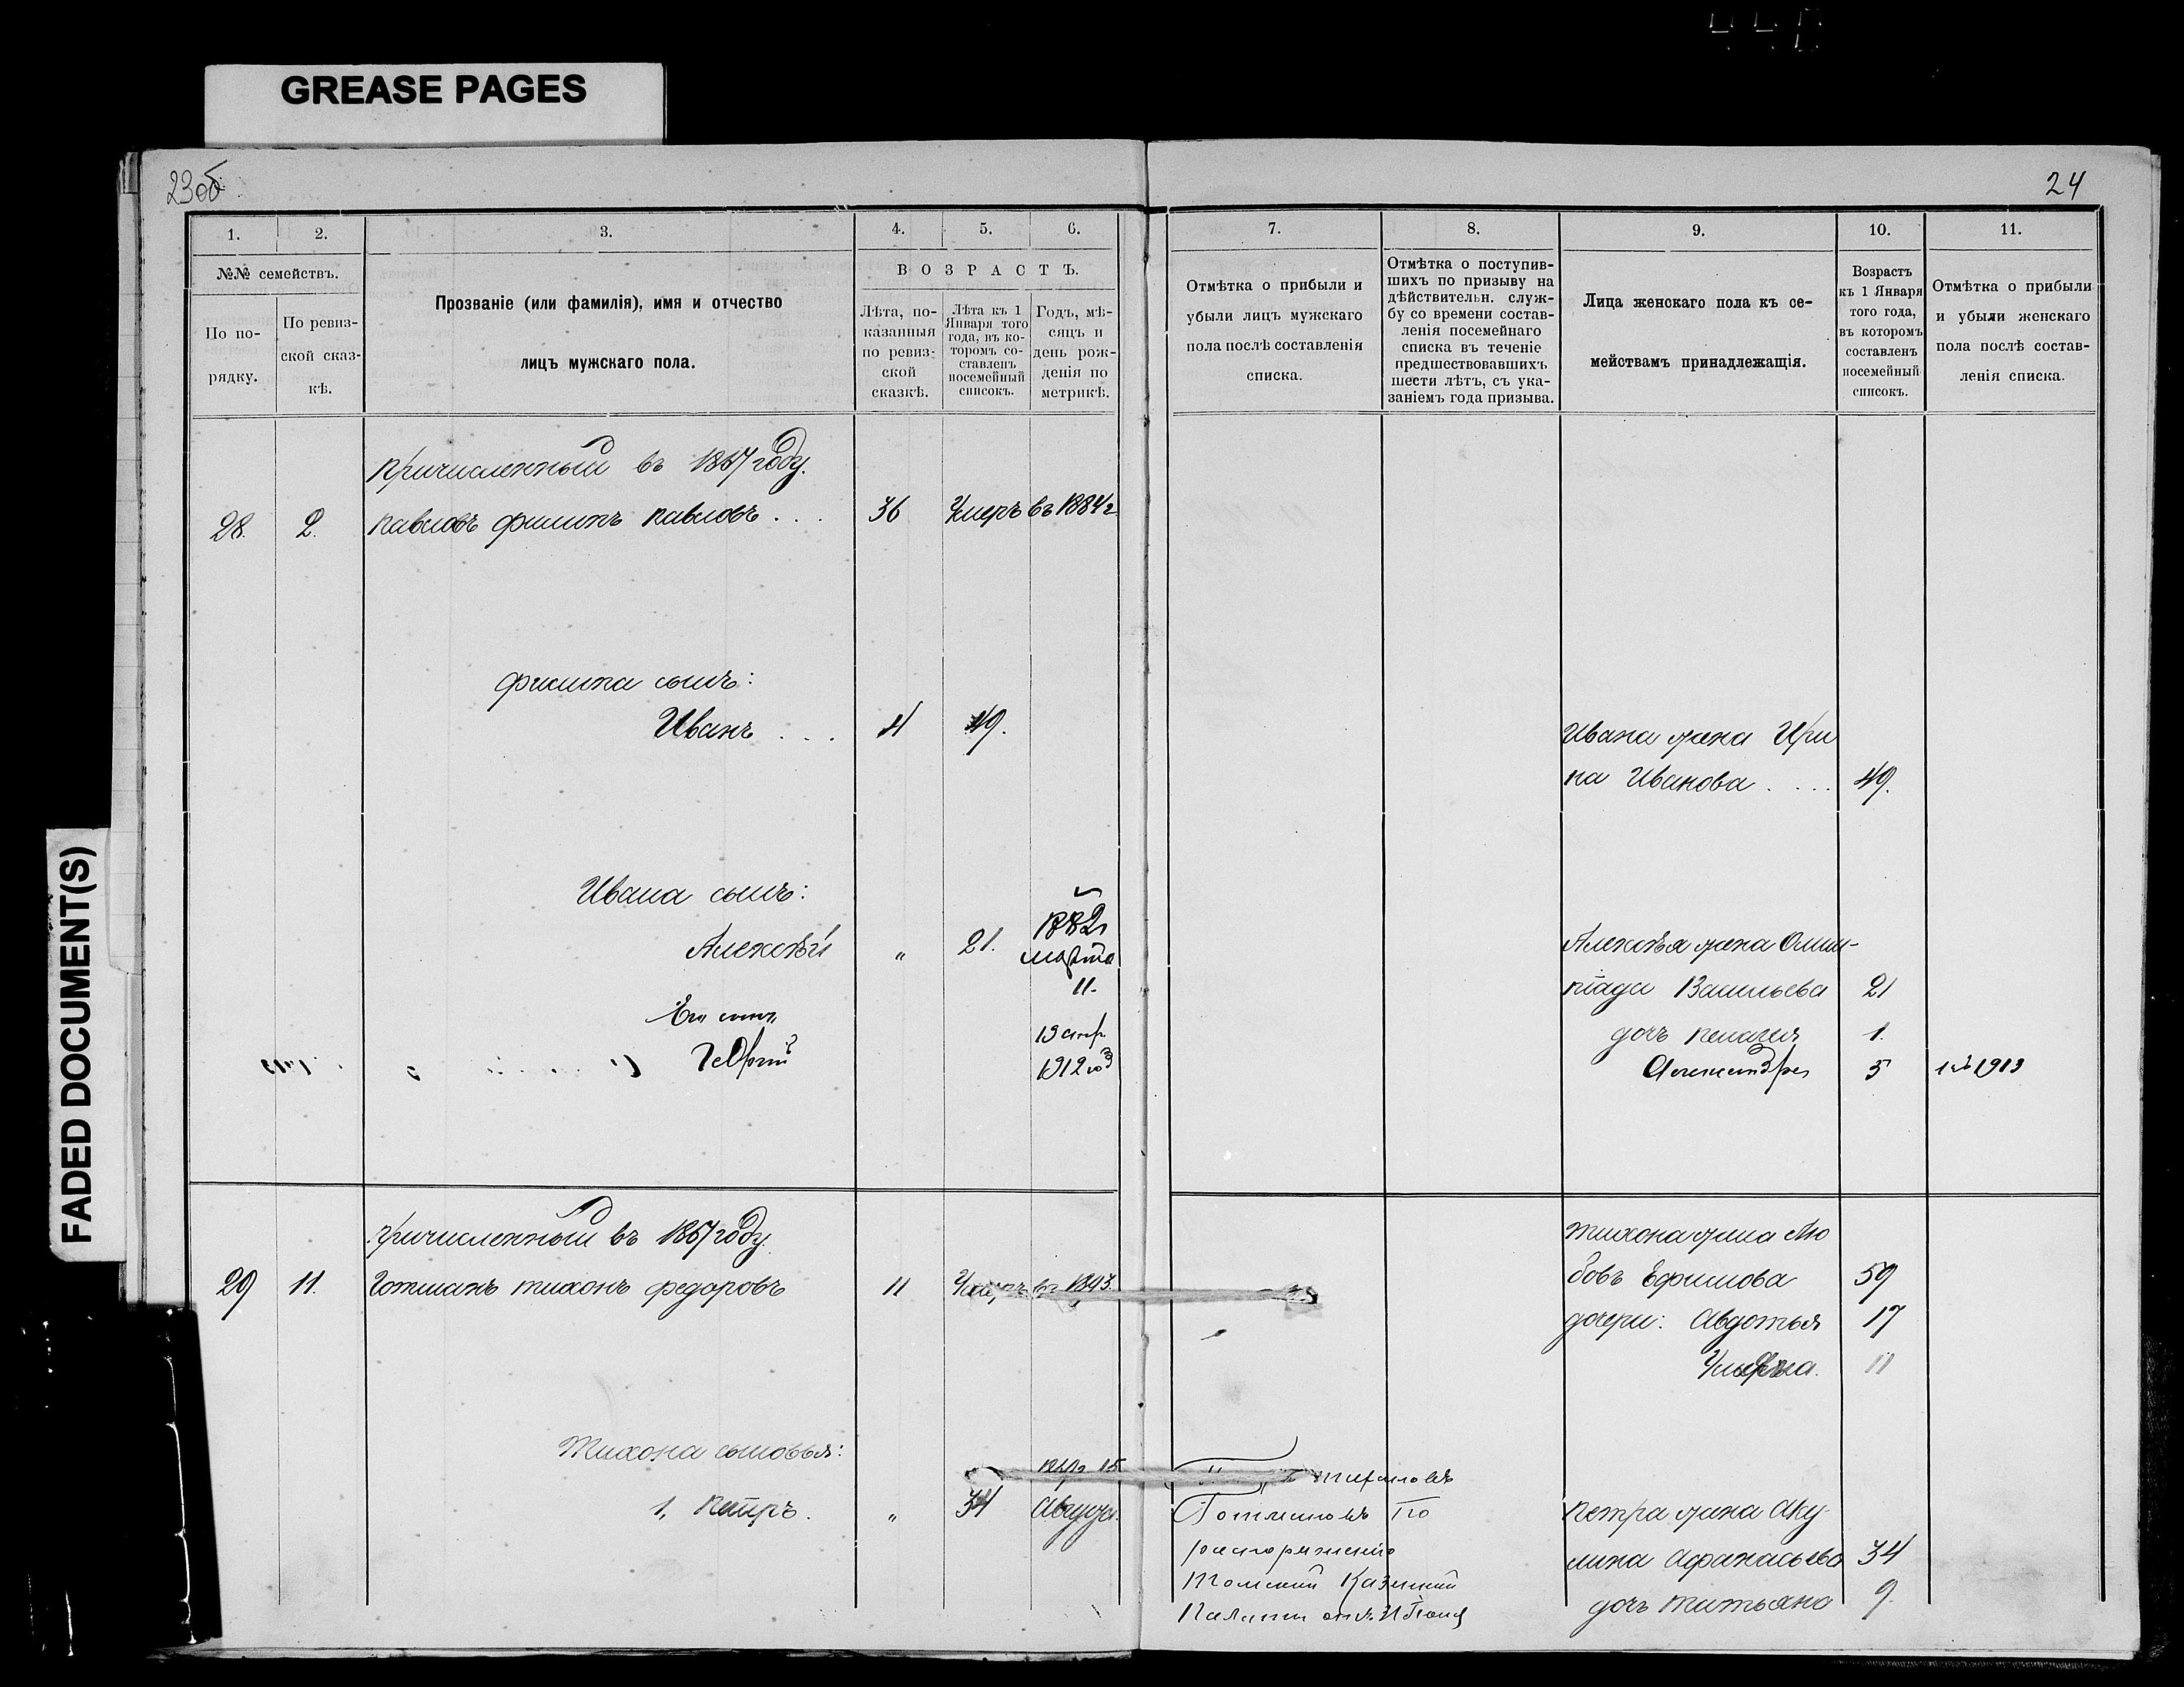 GREASE PAGES
FADED DOCUMENT(S)
23об
24
1. 2. 3. 4. 5. 6.
№№ семействъ.
По по-
рядку.
По ревиз-
ской сказ-
кѣ.
Прозваніе (или фамилія), имя и отчество
лицъ мужскаго пола.
ВОЗРАСТЪ.
Лѣта, по-
казанныя
по ревиз-
ской
сказкѣ.
Лѣта къ 1
Января того
года, въ ко-
торомъ со-
ставленъ
посемейный
списокъ.
Годъ, мѣ-
сяцъ и
день рож-
денія по
метрикѣ.
7. 8. 9. 10. 11.
Отмѣтка о прибыли и
убыли лицъ мужскаго
пола послѣ составленія
списка.
Отмѣтка о поступив-
шихъ по призыву на
дѣйствительн. служ-
бу со времени состав-
ленія посемейнаго
списка въ теченіе
предшествовавшихъ
шести лѣтъ, съ ука-
заніемъ года призыва.
Лица женскаго пола къ се-
мействамъ принадлежащія.
Возрастъ
къ 1 Января
того года,
въ которомъ
составленъ
посемейный
списокъ.
Отмѣтка о прибыли
и убыли женскаго
пола послѣ состав-
ленія списка.
Причисленный въ 1867 году.
28. 2. Павловъ Филипъ Павловъ . . . 36 Умеръ въ 1884 г.
Филипа сынъ:
Иванъ . . . 4 49.
Ивана жена Ири
на Иванова . . . . 49.
Ивана сынъ:
Алексѣй " 21. 1882
марта
11.
Алексѣя жена Олим-
піада Васильева 21
Его сынъ
Георгій
13 апр
1912 год
дочь Пелагея 1.
Александра 5
1913
Причисленный въ 1867 году.
29 11. Готманъ Тихонъ Федоровъ 11 Умеръ въ 1893.
Тихона жена Лю
бовь Ефимова 59
дочери: Авдотья 17
11
Тихона сыновья:
1, Петръ. " 34
15
Августа
Готмановъ По
распоряженію
Томской Казенной
Палаты
Петра жена Аку
лина Афанасьева 34
дочь Татьяна 9.